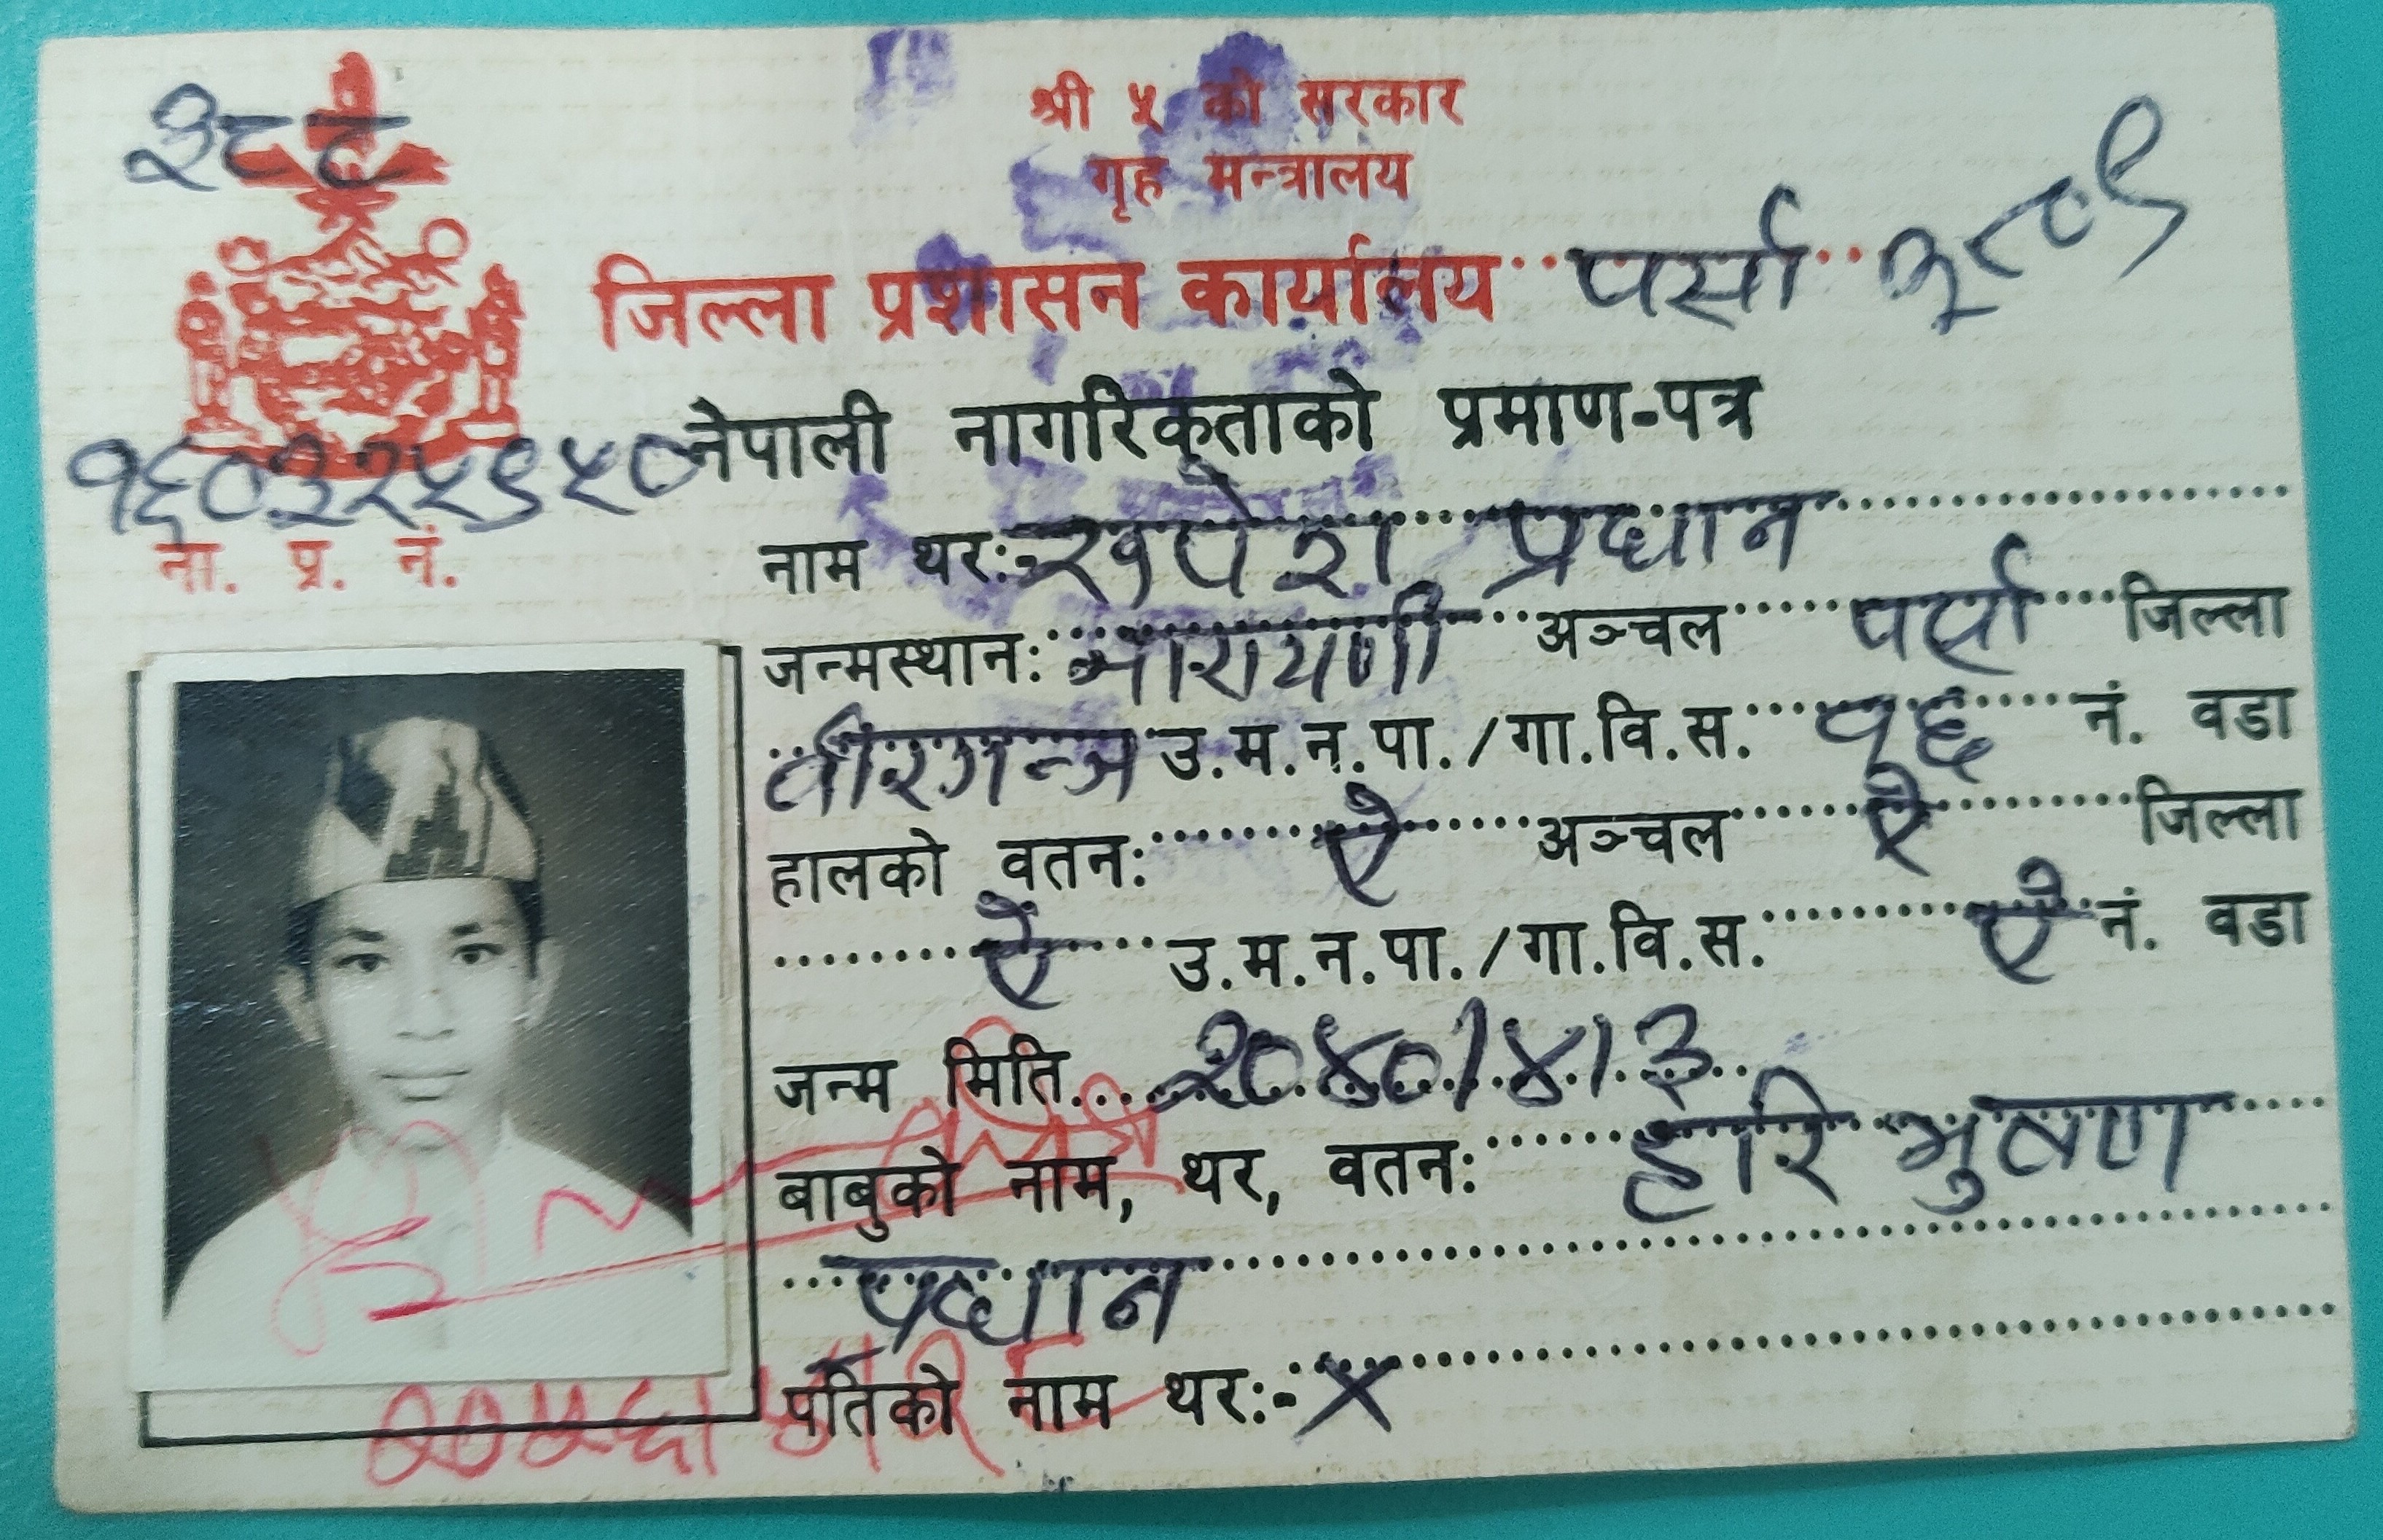 ३८८
श्री ५ को सरकार
गृह मन्त्रालय
जिल्ला प्रशासन कार्यालय पर्सा
नेपाली नागरिकताको प्रमाण-पत्र
ना. प्र. नं.
नाम थर:- प्रधान
जन्मस्थान: नारायणी अञ्चल पर्सा जिल्ला
वीरगन्ज उ.म.न.पा./गा.वि.स. १६ नं. वडा
हालको वतन: ऐ अञ्चल ऐ जिल्ला
ऐ उ.म.न.पा./गा.वि.स. ऐ नं. वडा
जन्म मिति २०४०/४/३
बाबुको नाम, थर, वतन: हरि भुषण
प्रधान
पतिको नाम थर:- ×